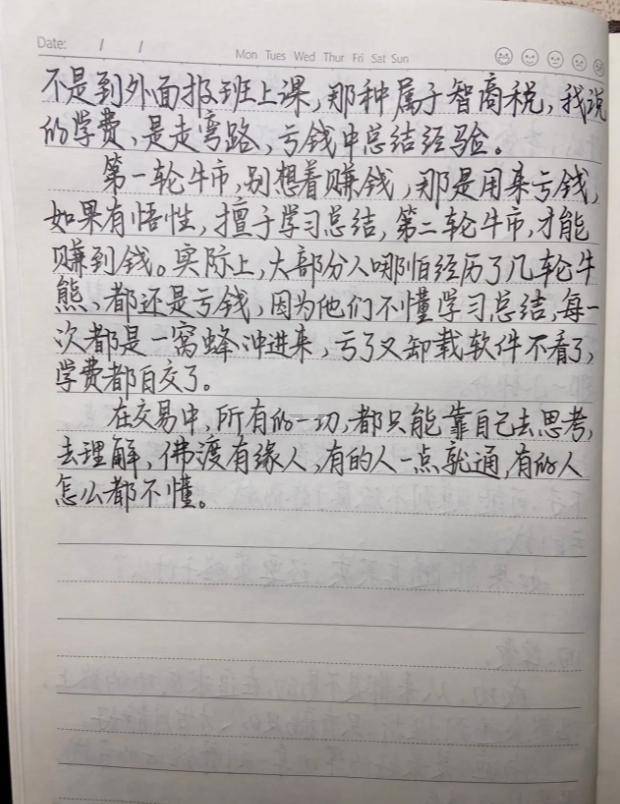 Date: / /
Mon Tues Wed Thur Fri Sat Sun
不是到外面报班上课,那种属于智商税,我说
的学费,是走弯路,亏钱中总结经验。
第一轮牛市,别想着赚钱,那是用来亏钱,
如果有悟性,擅于学习总结,第二轮牛市,才能
赚到钱。实际上,大部分人哪怕经历了几轮牛
熊、都还是亏钱,因为他们不懂学习总结,每一
次都是一窝蜂冲进来,亏了又卸载软件不看了,
学费都白交了。
在交易中,所有的一切,都只能靠自己去思考,
去理解,佛渡有缘人,有的人一点就通,有的人
怎么都不懂。